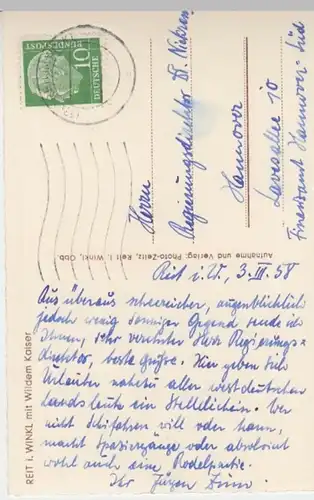 DEUTSCHE
BUNDESPOST
10
Herrn
Regierungsdirektor W.
Hannover
Lavesallee 10
Finanzamt Hannover-Süd
Aufnahme und Verlag: Photo-Zeitz, Reit i. Winkl, Obb.
REIT i. WINKL mit Wildem Kaiser
Reit i. W., 3. III. 58
Aus überaus schneereicher, augenblicklich
jedoch wenig sonniger Gegend, sende ich
Ihnen, sehr verehrter Herr Regierungs=
direktor, beste Grüße. Hier geben sich
Urlauber nahezu aller westdeutschen
Landsleute ein Stelldichein. Wer
nicht Schifahren will oder kann,
macht Spaziergänge oder absolviert
wohl auch eine Rodelpartie.
Ihr Jürgen